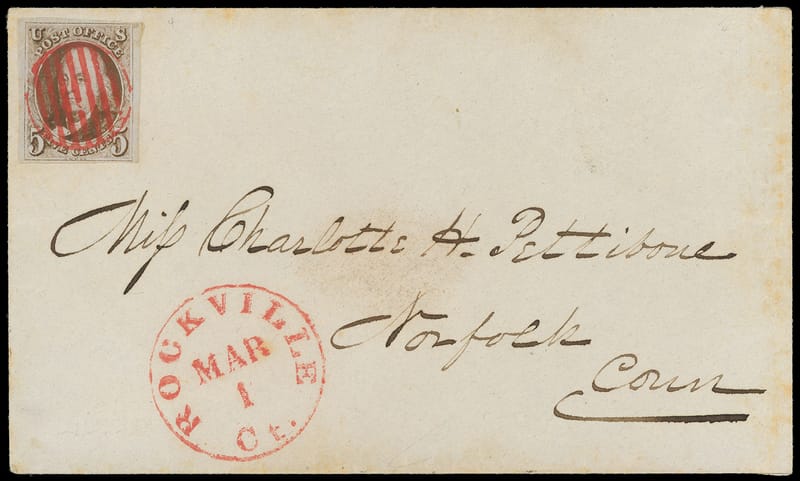 U S
POST OFFICE
FIVE CENTS
5 5
Miſs Charlotte H. Pettibone
Norfolk
Conn
ROCKVILLE
MAR
1
Ct.